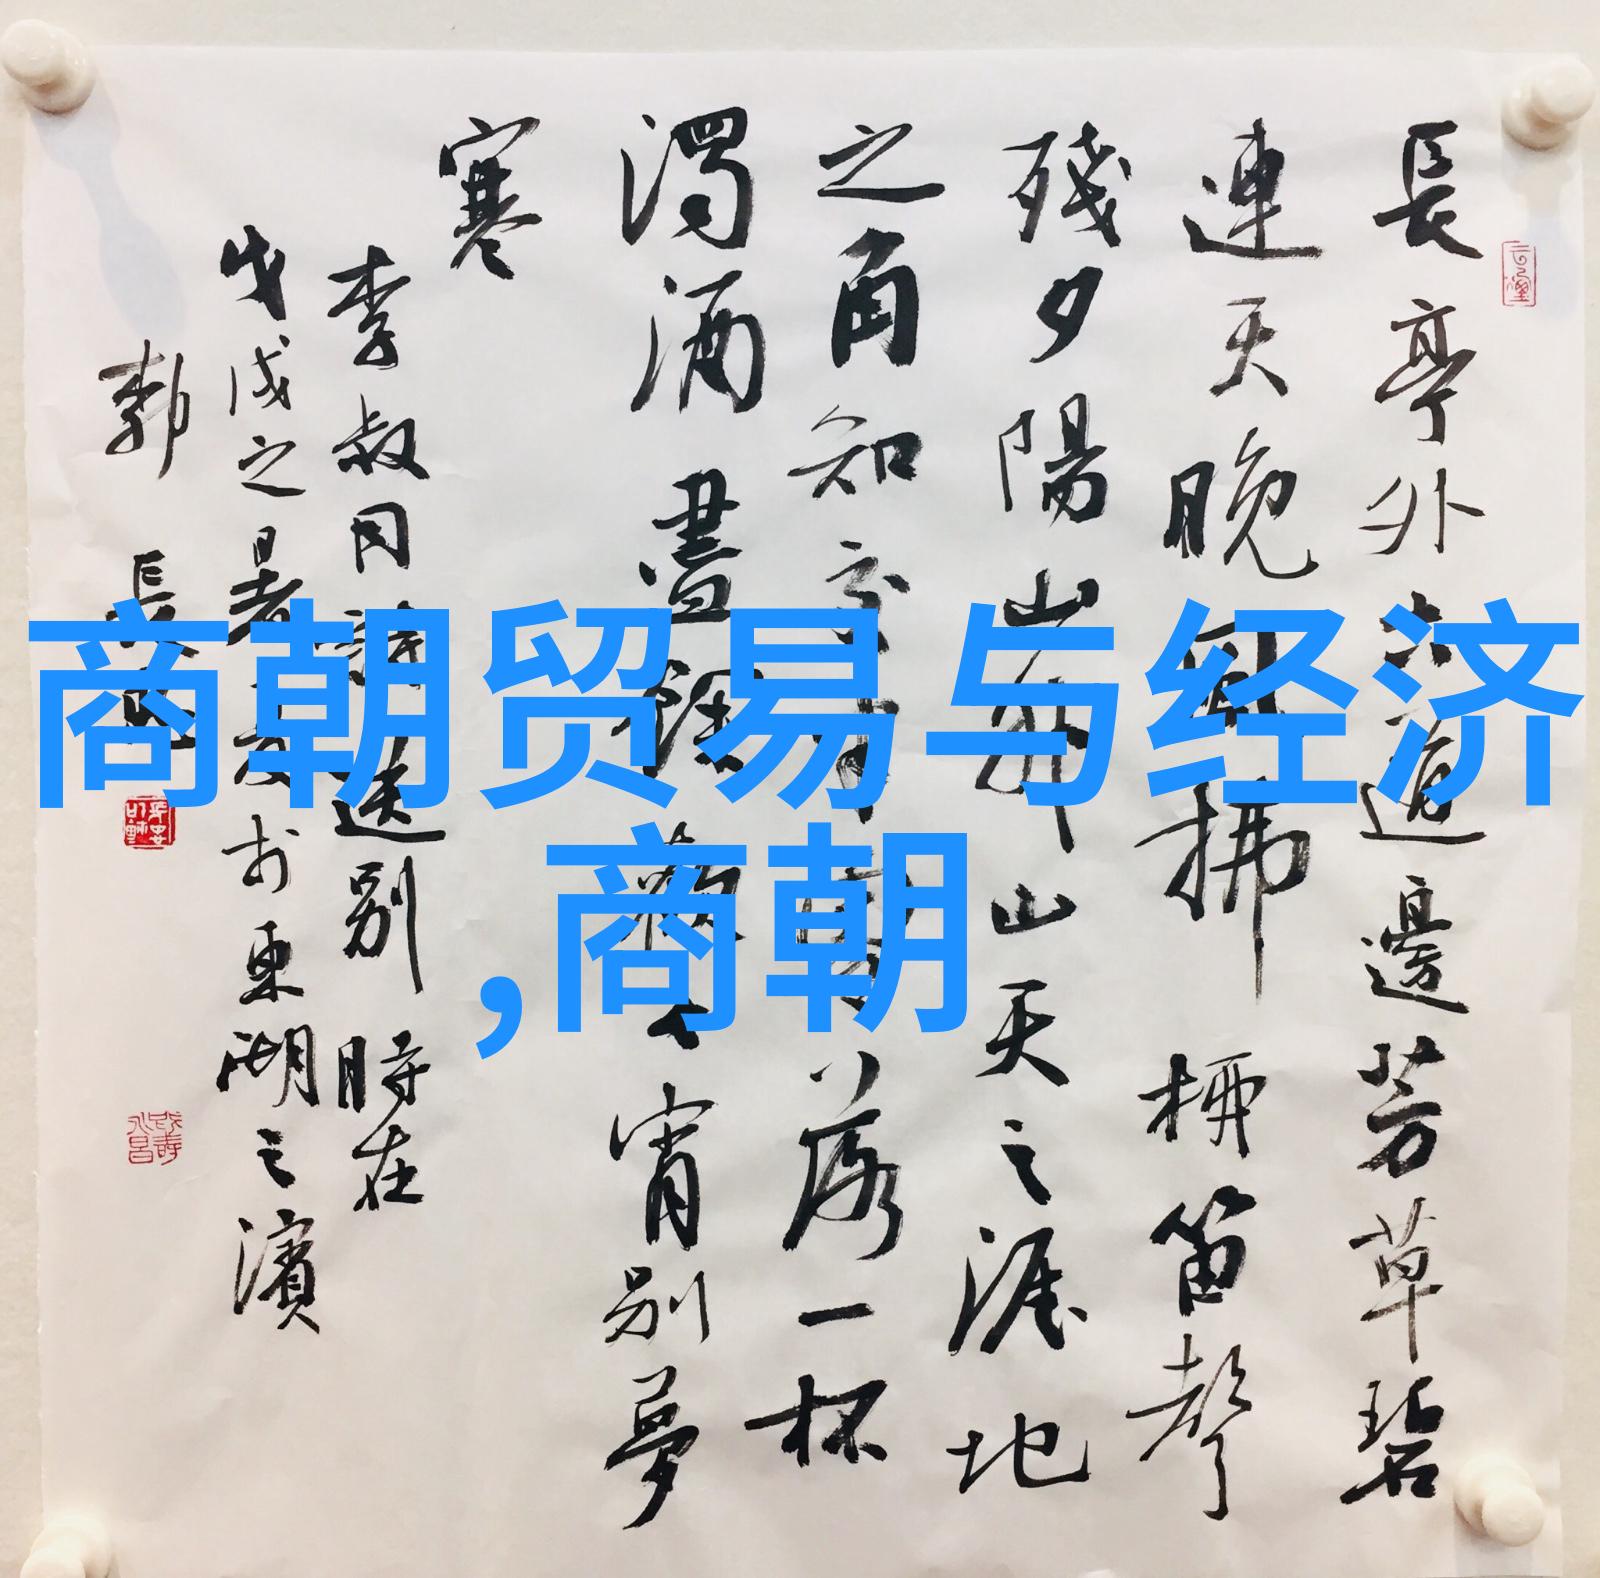 長亭外古道邊芳草碧
連天晚風拂柳笛聲
殘夕陽山外山天之涯地
之角知交半零落一杯
濁酒盡餘歡今宵別夢
寒
李叔同詩送別 時在
戊戌之暑於東湖之濱
商朝贸易与经济
,商朝